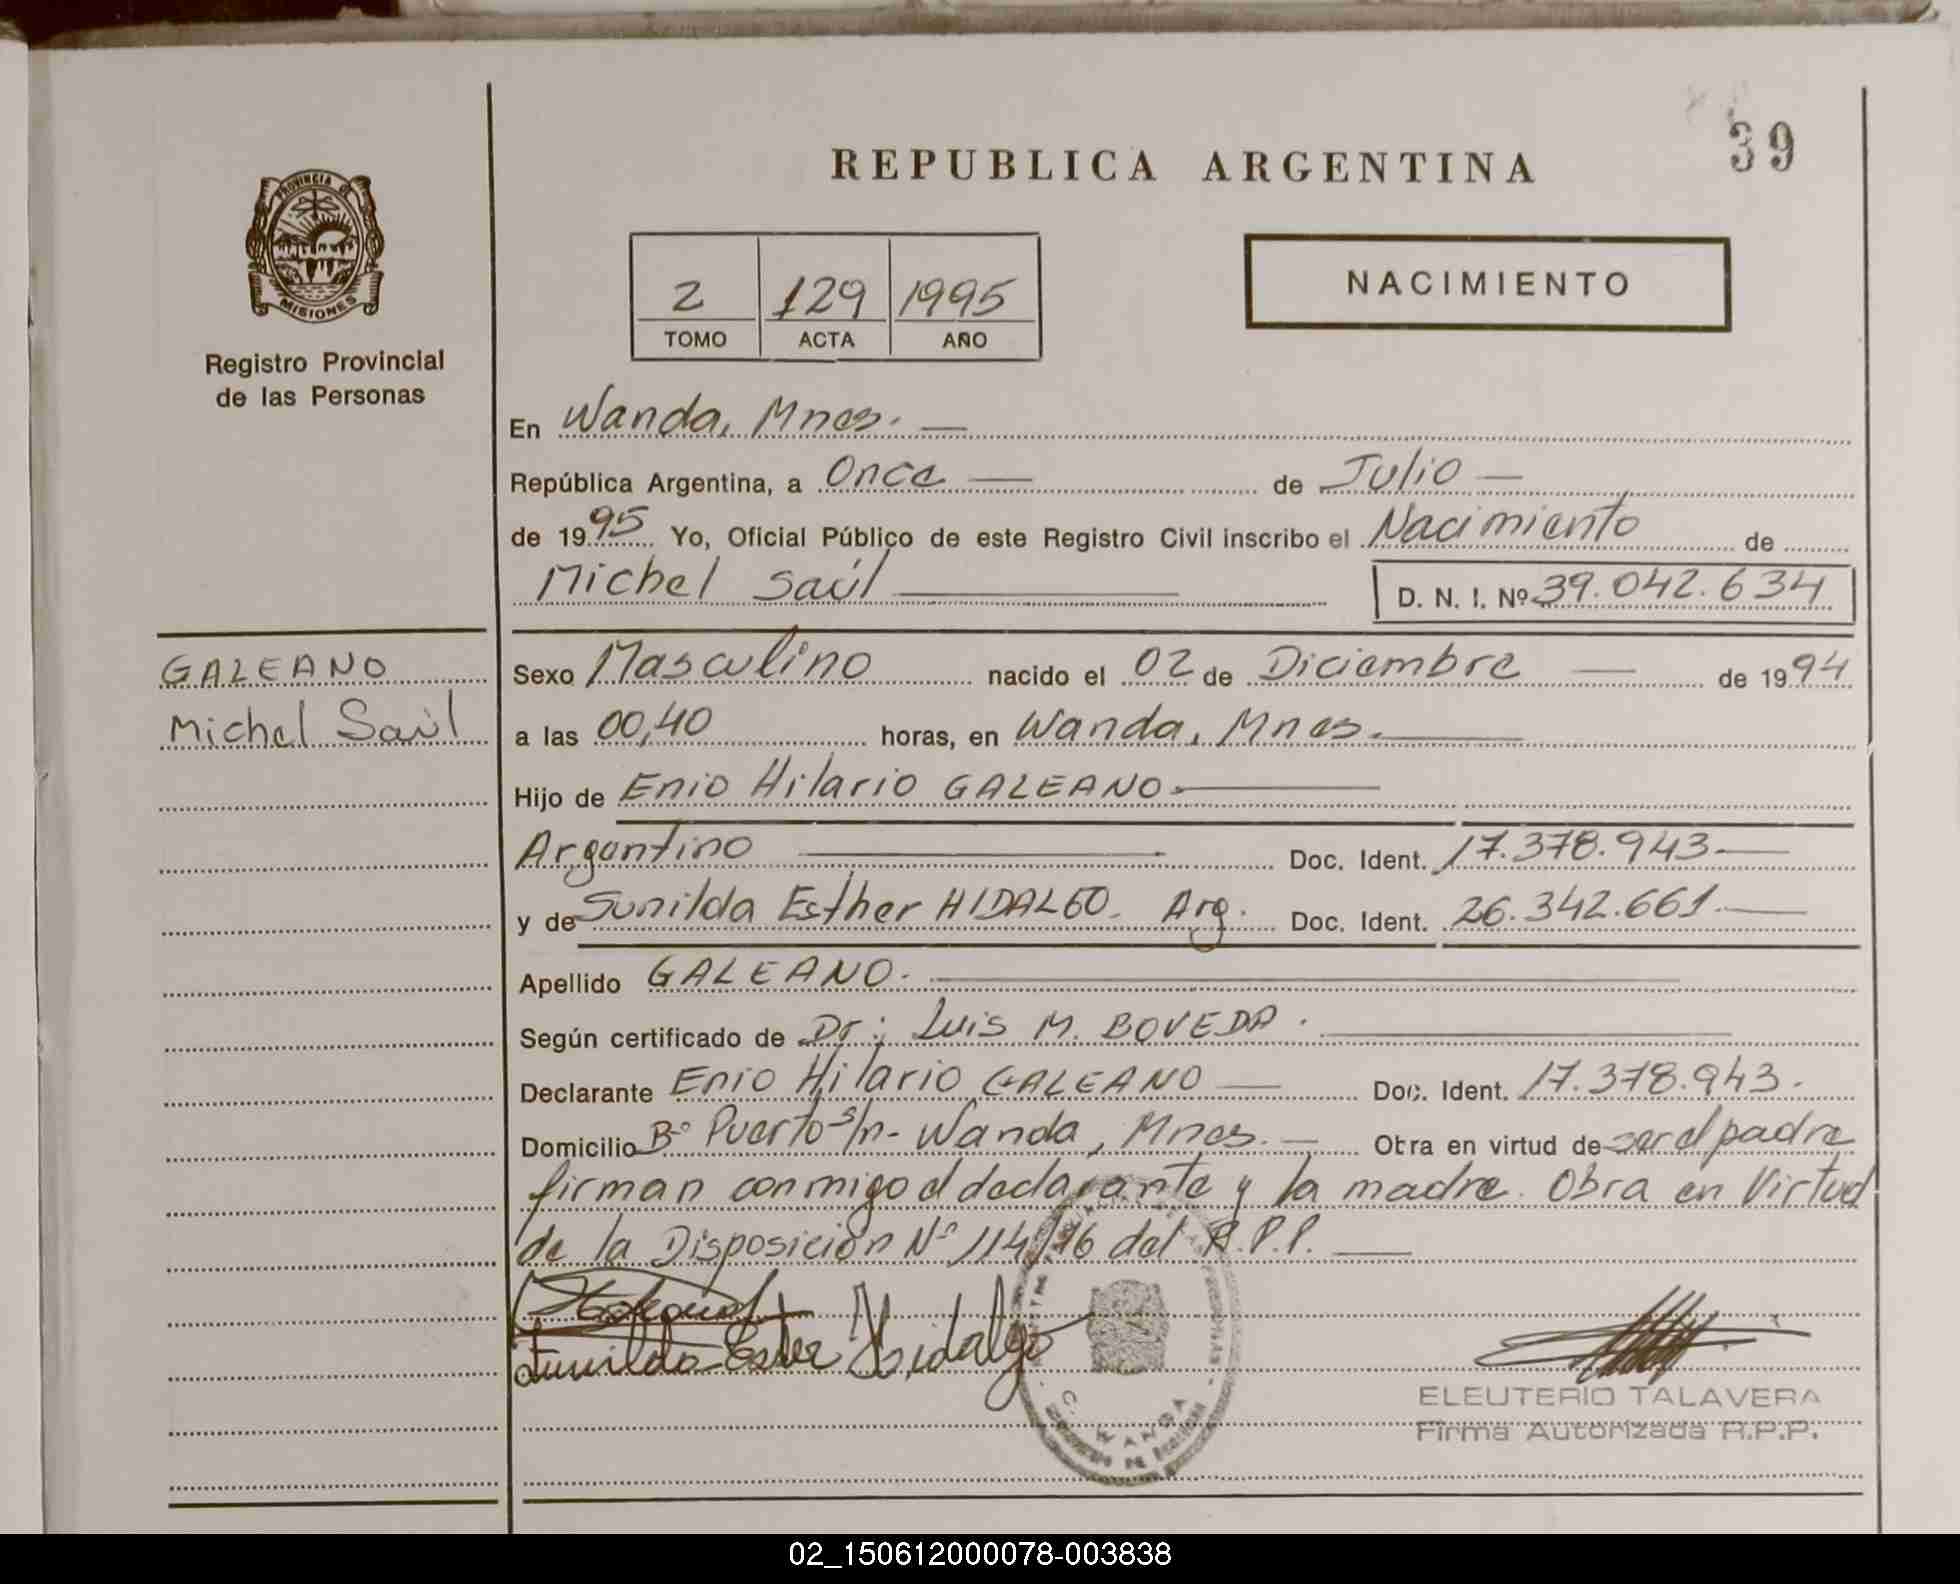 REPUBLICA ARGENTINA
39
PROVINCIA DE
MISIONES
Registro Provincial
de las Personas
2 129 1995
TOMO ACTA AÑO
NACIMIENTO
En Wanda, Mnes. —
República Argentina, a Once — de Julio —
de 1995 Yo, Oficial Público de este Registro Civil inscribo el Nacimiento de
Michel Saúl — D. N. I. Nº 39.042.634
GALEANO
Michel Saúl
Sexo Masculino nacido el 02 de Diciembre — de 1994
a las 00,40 horas, en Wanda, Mnes. —
Hijo de Enio Hilario GALEANO. —
Argentino — Doc. Ident. 17.378.943 —
y de Sunilda Esther HIDALGO. Arg. Doc. Ident. 26.342.661. —
Apellido GALEANO. —
Según certificado de Dr: Luis M. BOVEDA. —
Declarante Enio Hilario GALEANO — Doc. Ident. 17.378.943.
Domicilio Bº Puerto s/n - Wanda, Mnes. — Obra en virtud de ser el padre
firman conmigo el declarante y la madre. Obra en Virtud
de la Disposición Nº 114/76 del R.P.P. —
Sunilda Ester Hidalgo
WANDA
ELEUTERIO TALAVERA
Firma Autorizada R.P.P.
02_150612000078-003838